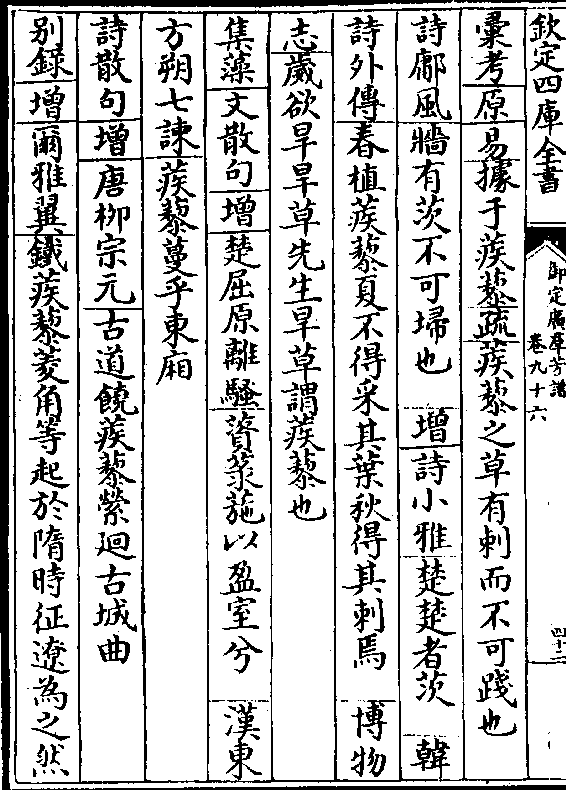 欽定四庫全書
御定廣羣芳譜
卷九十六
四十二
彙考原易據于蒺藜疏蒺藜之草有刺而不可踐也
詩鄘風牆有茨不可埽也　增詩小雅楚楚者茨　韓
詩外傳春植蒺藜夏不得采其葉秋得其刺焉　博物
志歲欲旱旱草先生旱草謂蒺藜也
集藻文散句增楚屈原離騷薋菉葹以盈室兮　漢東
方朔七諫蒺藜蔓乎東廂
詩散句增唐柳宗元古道饒蒺藜縈廻古城曲
别録增爾雅翼鐵蒺藜菱角等起於隋時征遼為之然